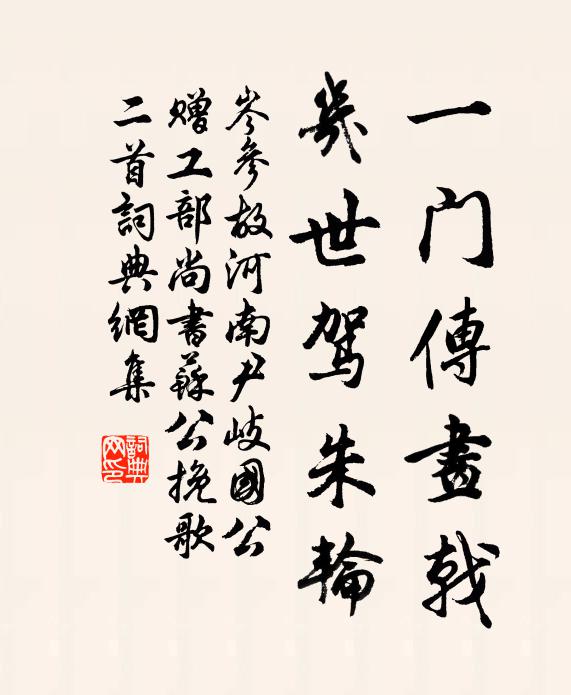 一门傳畫戟
幾世駕朱輪
岑參故河南尹岐國公
赠工部尚書蘇公挽歌
二首詞典網集
詞典网印